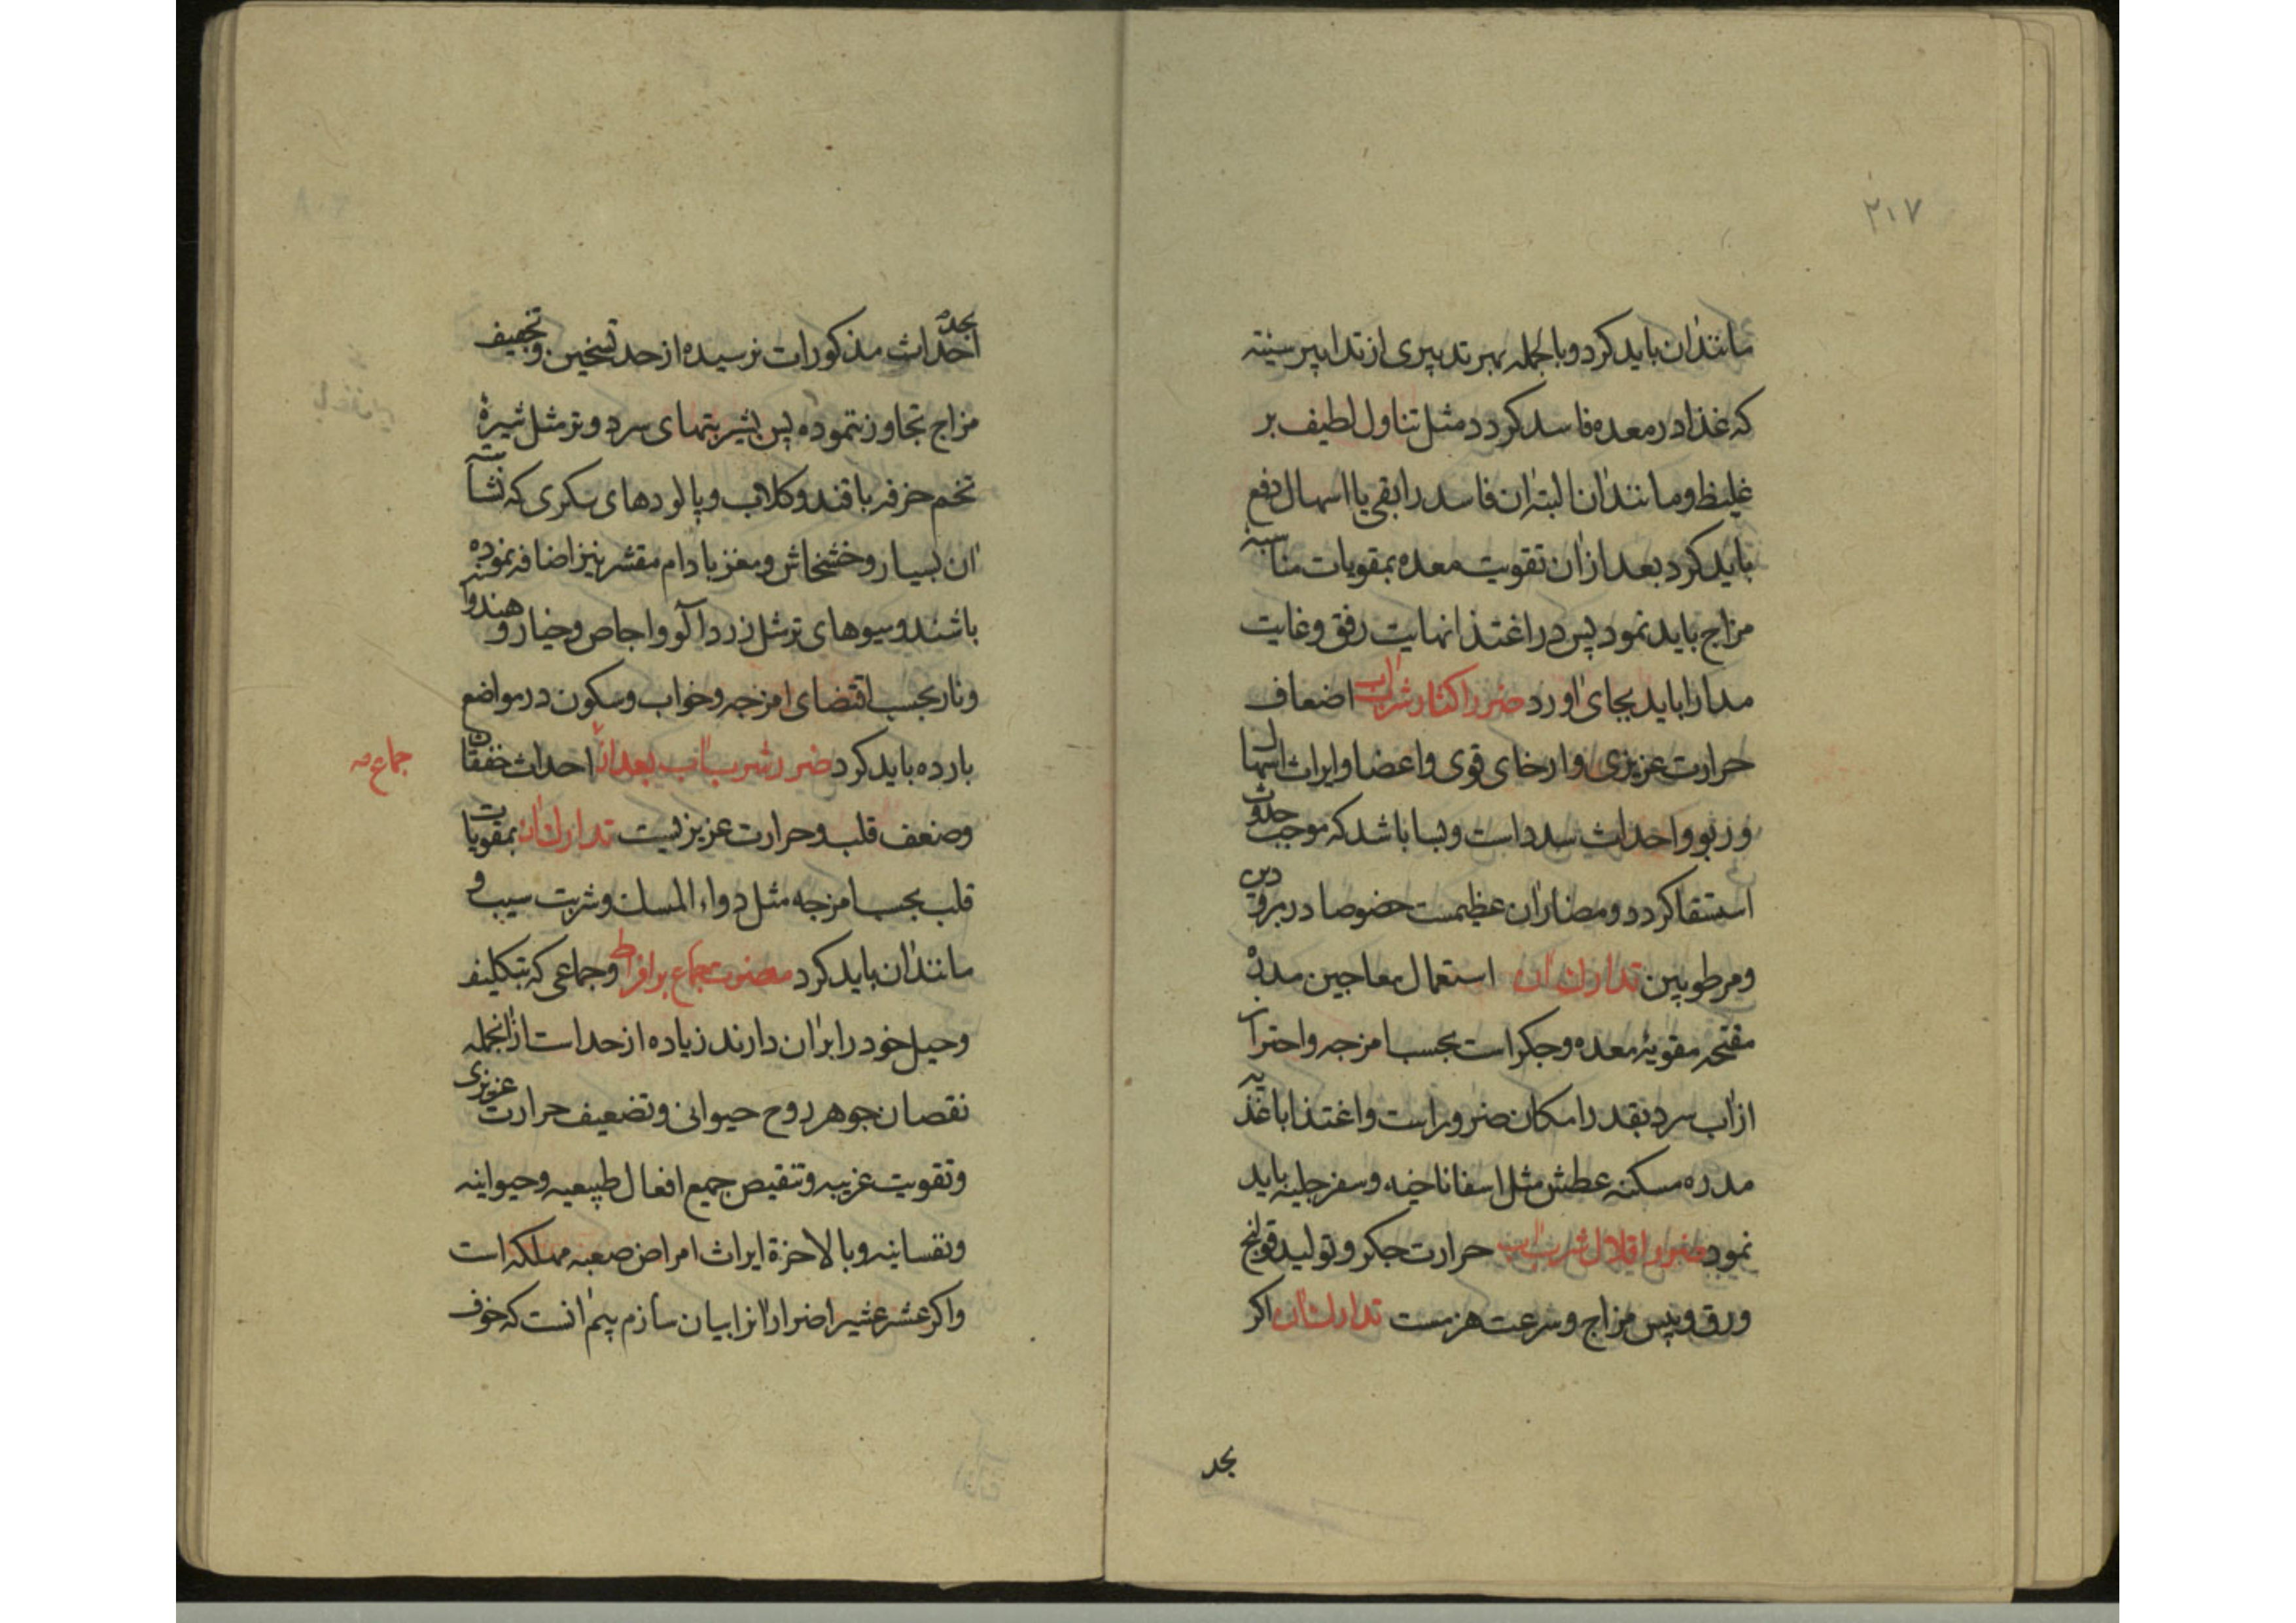 ۲۱۷
مانند آن باید کرد و بالجمله بهر تدبیری از تدابیر سیئه
که غذا در معده فاسد کردد مثل تناول لطیف بر
غلیظ و مانند آن البته آن فاسد را بقی یا اسهال دفع
باید کرد بعد از آن تقویت معده بمقویات مناسبه
مزاج باید نمود پس در اغتذا نهایت رفق و غایت
مدارا باید بجای آورد ضرر اکثار شرب آب اضعاف
حرارت عزیزی و ارخای قوی و اعضا و ایراث اسهال
و ربو و احداث سدد است و بسا باشد که موجب حدوث
استسقا کردد و مضار آن عظیمست خصوصا در مبرودین
و مرطوبین تدارک آن استعمال معاجین مدره
مفتحه مقویه معده و جکر است بحسب امزجه و احتراز
از آب سرد بقدر امکان ضرور است و اغتذا باغذیه
مدره مسکنه عطش مثل اسفاناخیه و سفرجلیه باید
نمود ضرر اقلال شرب آب حرارت جکر و تولید قولنج
ودق و یبس مزاج و سرعت هرمست تدارک آن اکر
بحد
بحد احداث مذکورات نرسیده از حد تسخین و تجفیف
مزاج تجاوز ننموده پس بشربتهای سرد و تر مثل شیرهٔ
تخم خرفه با قند و کلاب و پالودهای سکری که نشآ
آن بسیار و خشخاش و مغز بادام مقشر نیز اضافه نموده
باشند و میوهای تر مثل زردآلو و اجاص و خیار و هندوانه
و نار بحسب اقتضای امزجه و خواب و سکون در مواضع
بارده باید کرد ضرر شرب آب بعد از احداث خفقان
جماع صه
و ضعف قلب و حرارت عزیزیست تدارک آن بمقویات
قلب بحسب امزجه مثل دواء المسک و شربت سیب و
مانند آن باید کرد مضرت جماع بر افراط و جماعی که بتکلیف
و حیل خود را بر آن دارند زیاده از حد است از آنجمله
نقصان جوهر روح حیوانی و تضعیف حرارت عزیزی
و تقویت غریبه و تنقیص جمیع افعال طبیعیه و حیوانیه
و نفسانیه و بالاخرة ایراث امراض صعبه مهلکه است
و اکر عشر عشیر اضرار آنرا بیان سازم بیم آنست که خوف